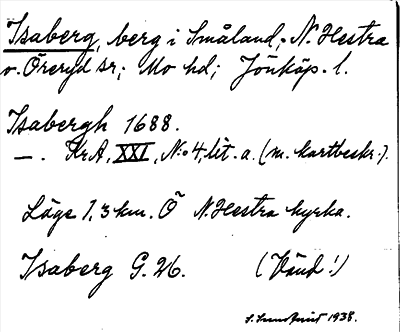 Isaberg, berg i Småland, N. Hestra
o. Öreryd sr; Mo hd; Jönköp. l.
Isabergh 1688.
—. KrA, XXI, N:o 4, lit. a. (m. kartbeskr.).
Läge 1,3 km. Ö N. Hestra kyrka.
Isaberg G. 26. (Vänd!)
1938.